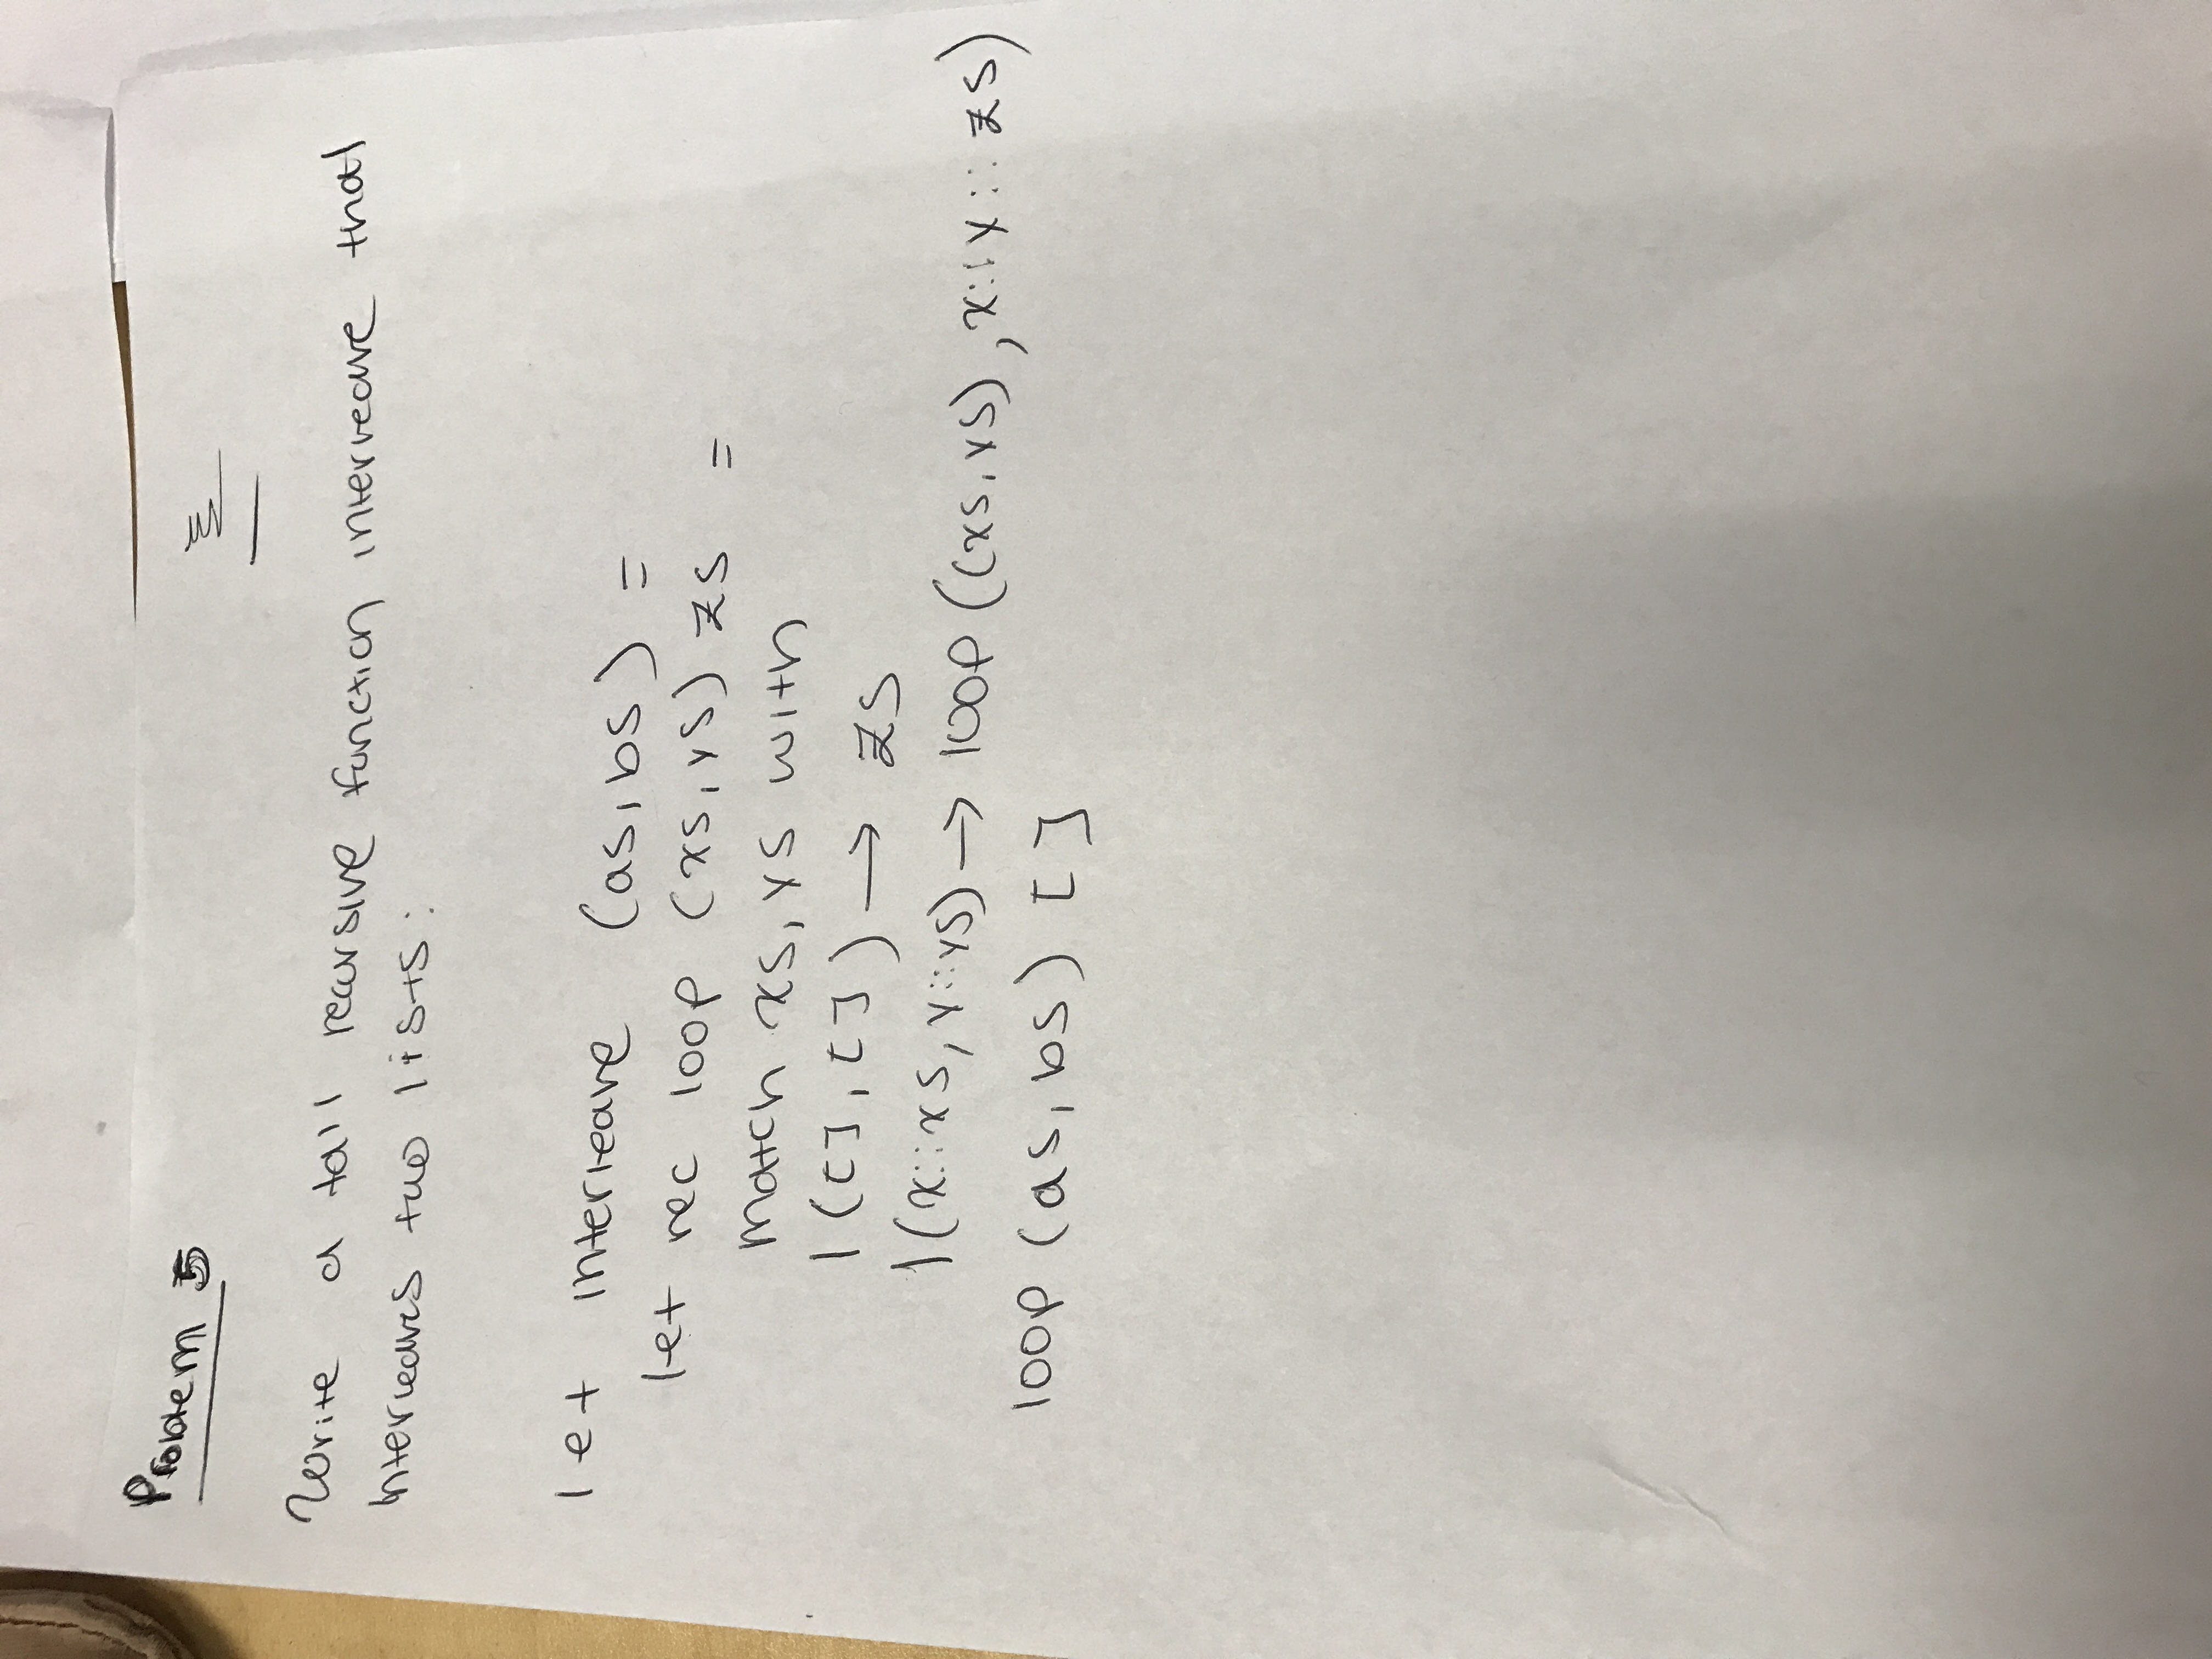 Problem 5
Write a tail recursive function interleave that
interleaves two lists:
let interleave (as, bs) =
let rec loop (xs, ys) zs =
match xs, ys with
| ([], []) → zs
| (x::xs, y::ys) → loop ((xs, ys), x::y::zs)
loop (as, bs) []